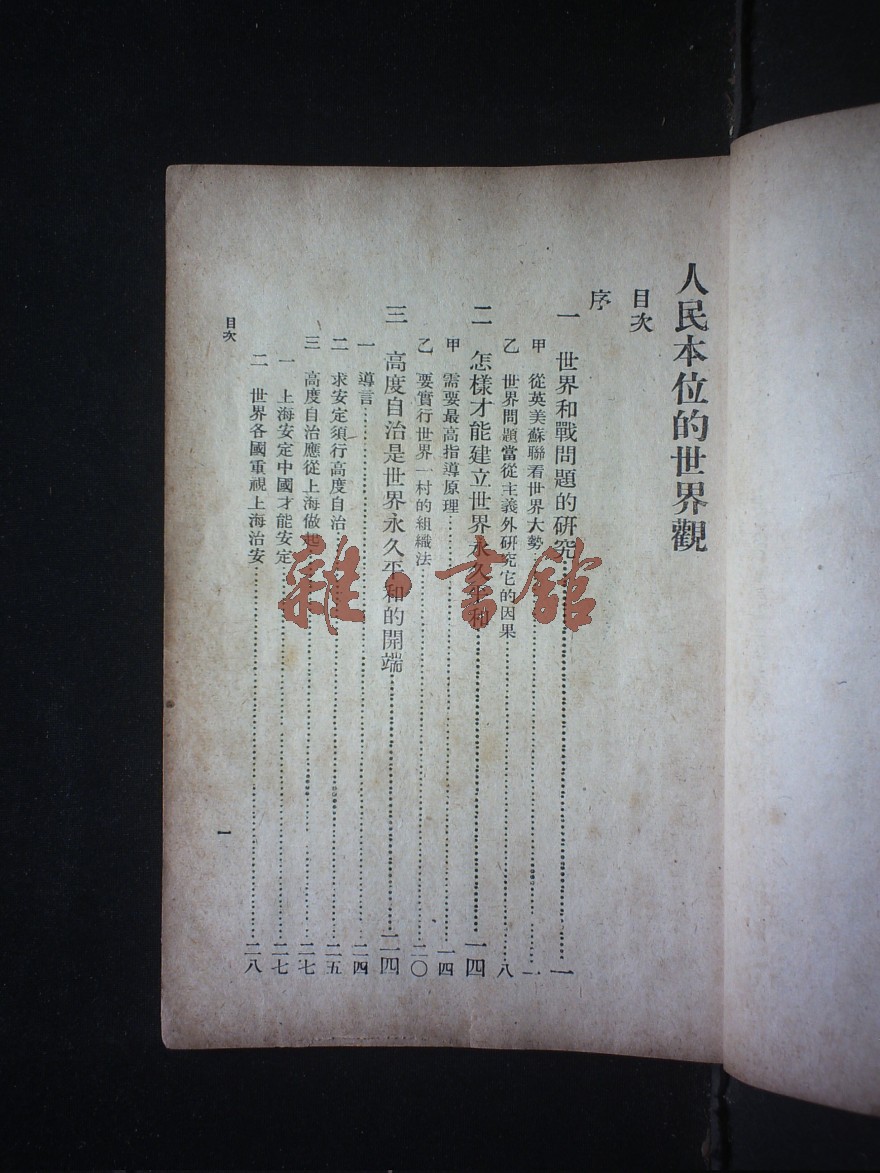 人民本位的世界觀
目次
序
一 世界和戰問題的研究……一
甲 從英美蘇聯看世界大勢……一
乙 世界問題當從主義外研究它的因果……八
二 怎樣才能建立世界永久平和……一四
甲 需要最高指導原理……一四
乙 要實行世界一村的組織法……二〇
三 高度自治是世界永久平和的開端……二四
一 導言……二四
二 求安定須行高度自治……二五
三 高度自治應從上海做起……二七
一 上海安定中國才能安定……二七
二 世界各國重視上海治安……二八
目次
一
雜·書館